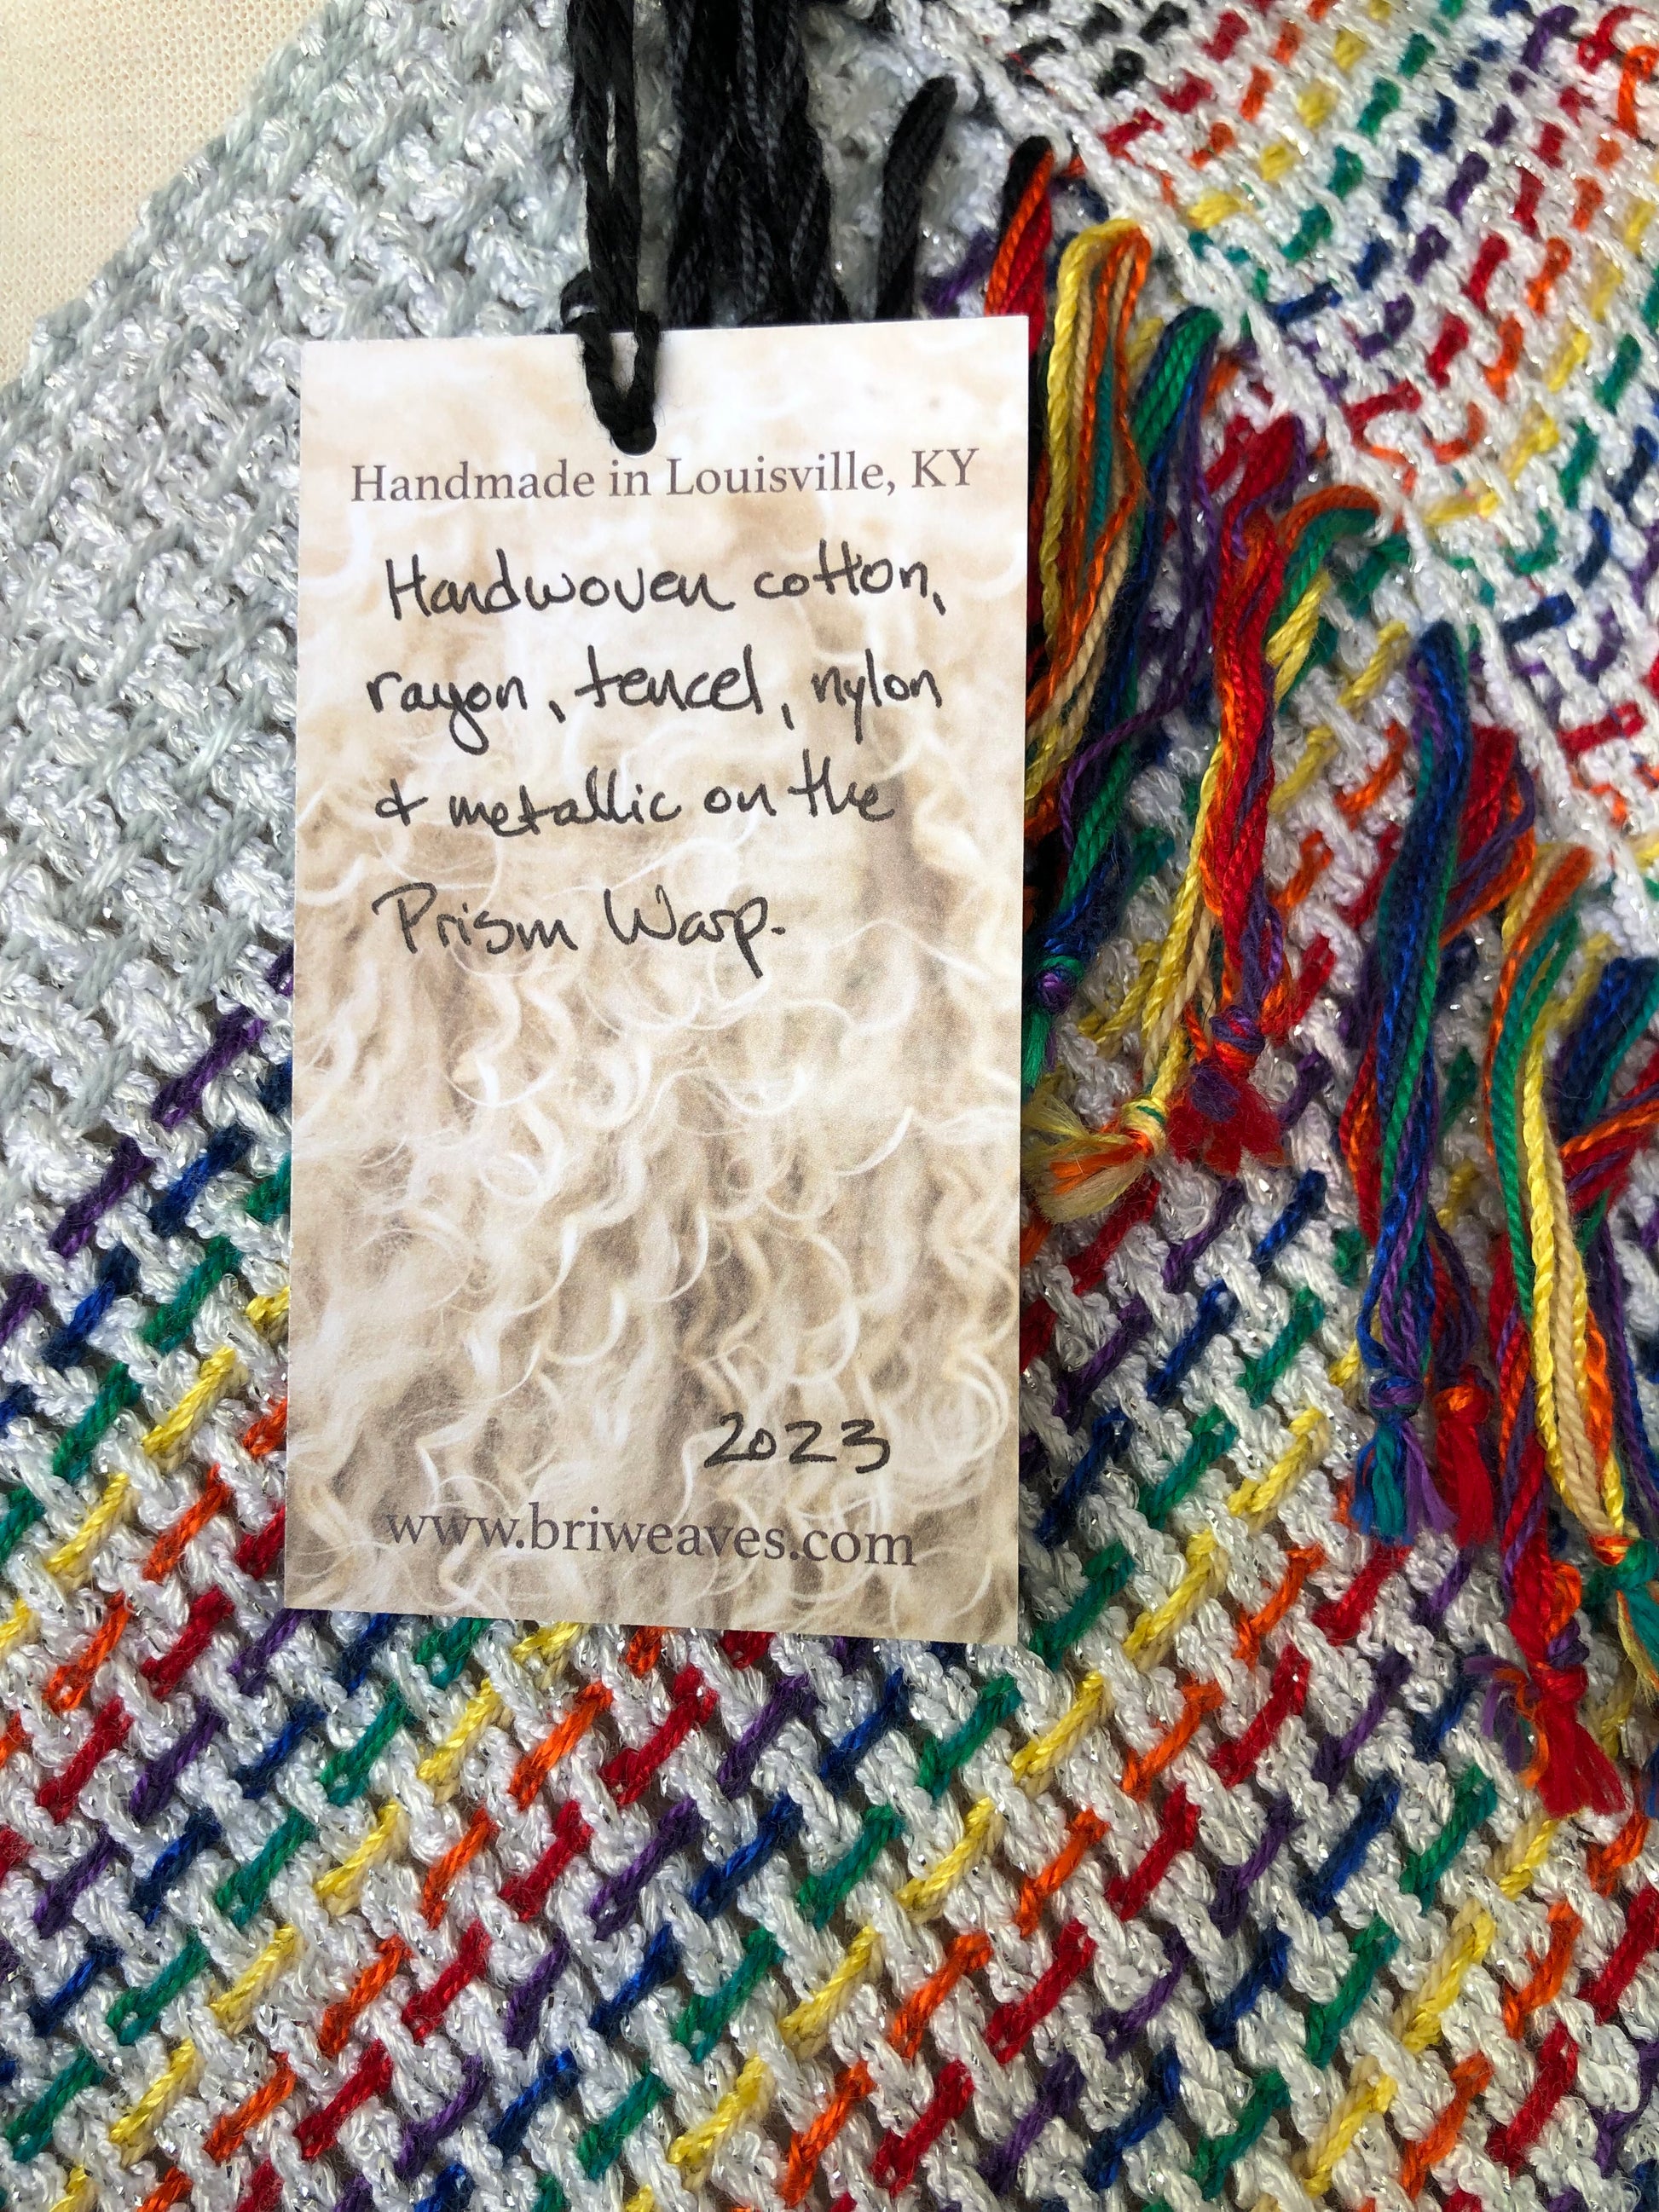 Handmade in Louisville, KY
Handwoven cotton,
rayon, tencel, nylon
& metallic on the
Prism Warp.
2023
www.briweaves.com